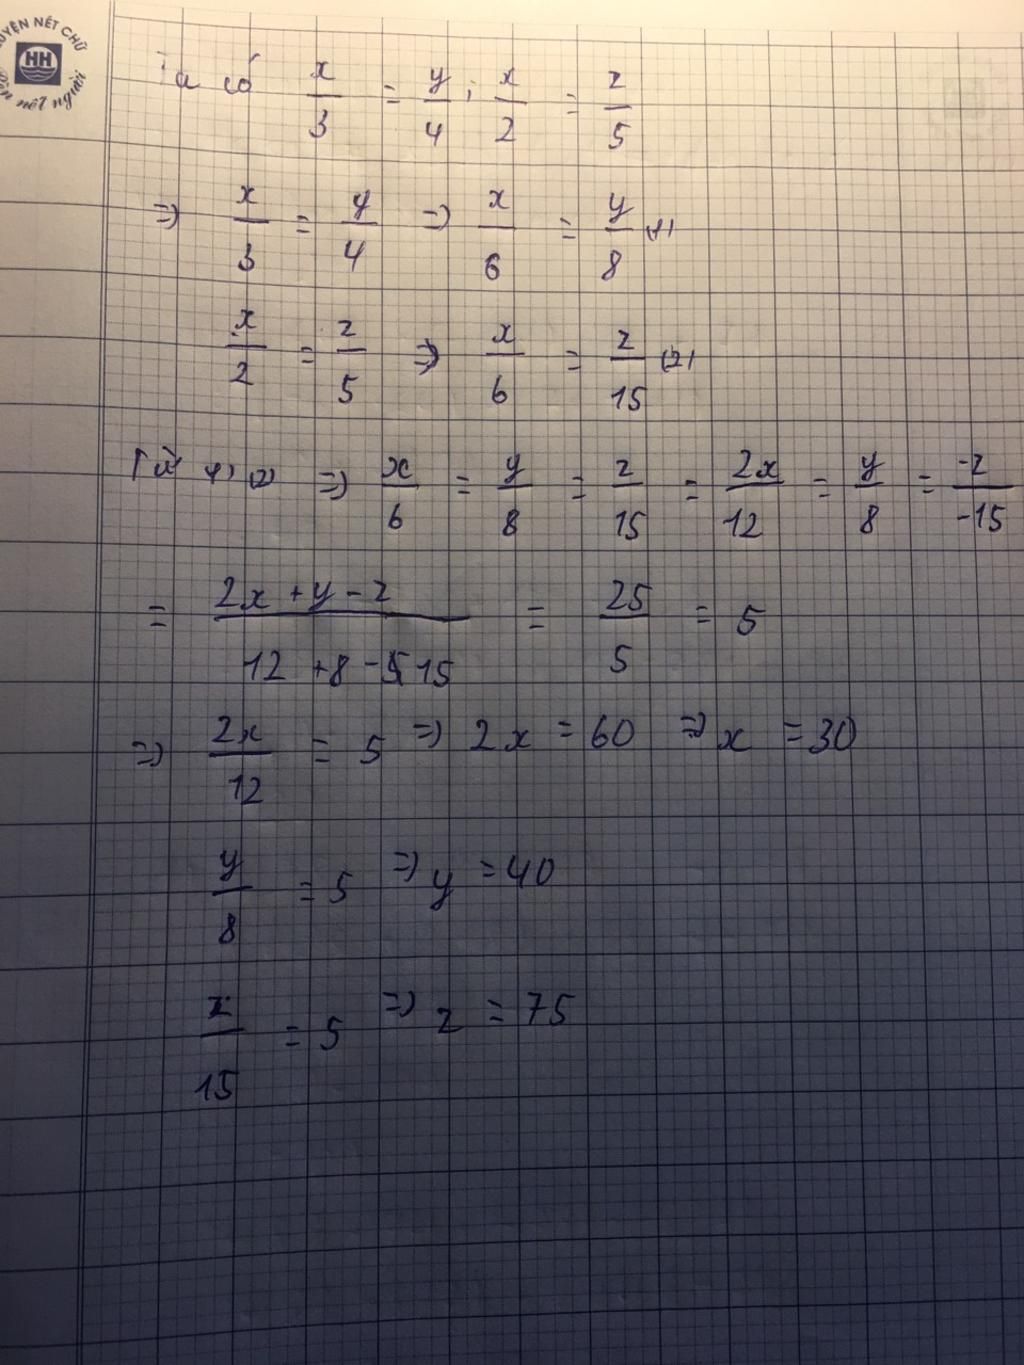 LUYỆN NÉT CHỮ
HH
Rèn nết người
Ta có x/3 = y/4 ; x/2 = z/5
=> x/3 = y/4 => x/6 = y/8 (1)
x/2 = z/5 => x/6 = z/15 (2)
Từ (1) (2) => x/6 = y/8 = z/15 = 2x/12 = y/8 = -z/-15
= 2x + y - z / 12 + 8 - 15 = 25/5 = 5
=> 2x/12 = 5 => 2x = 60 => x = 30
y/8 = 5 => y = 40
z/15 = 5 => z = 75